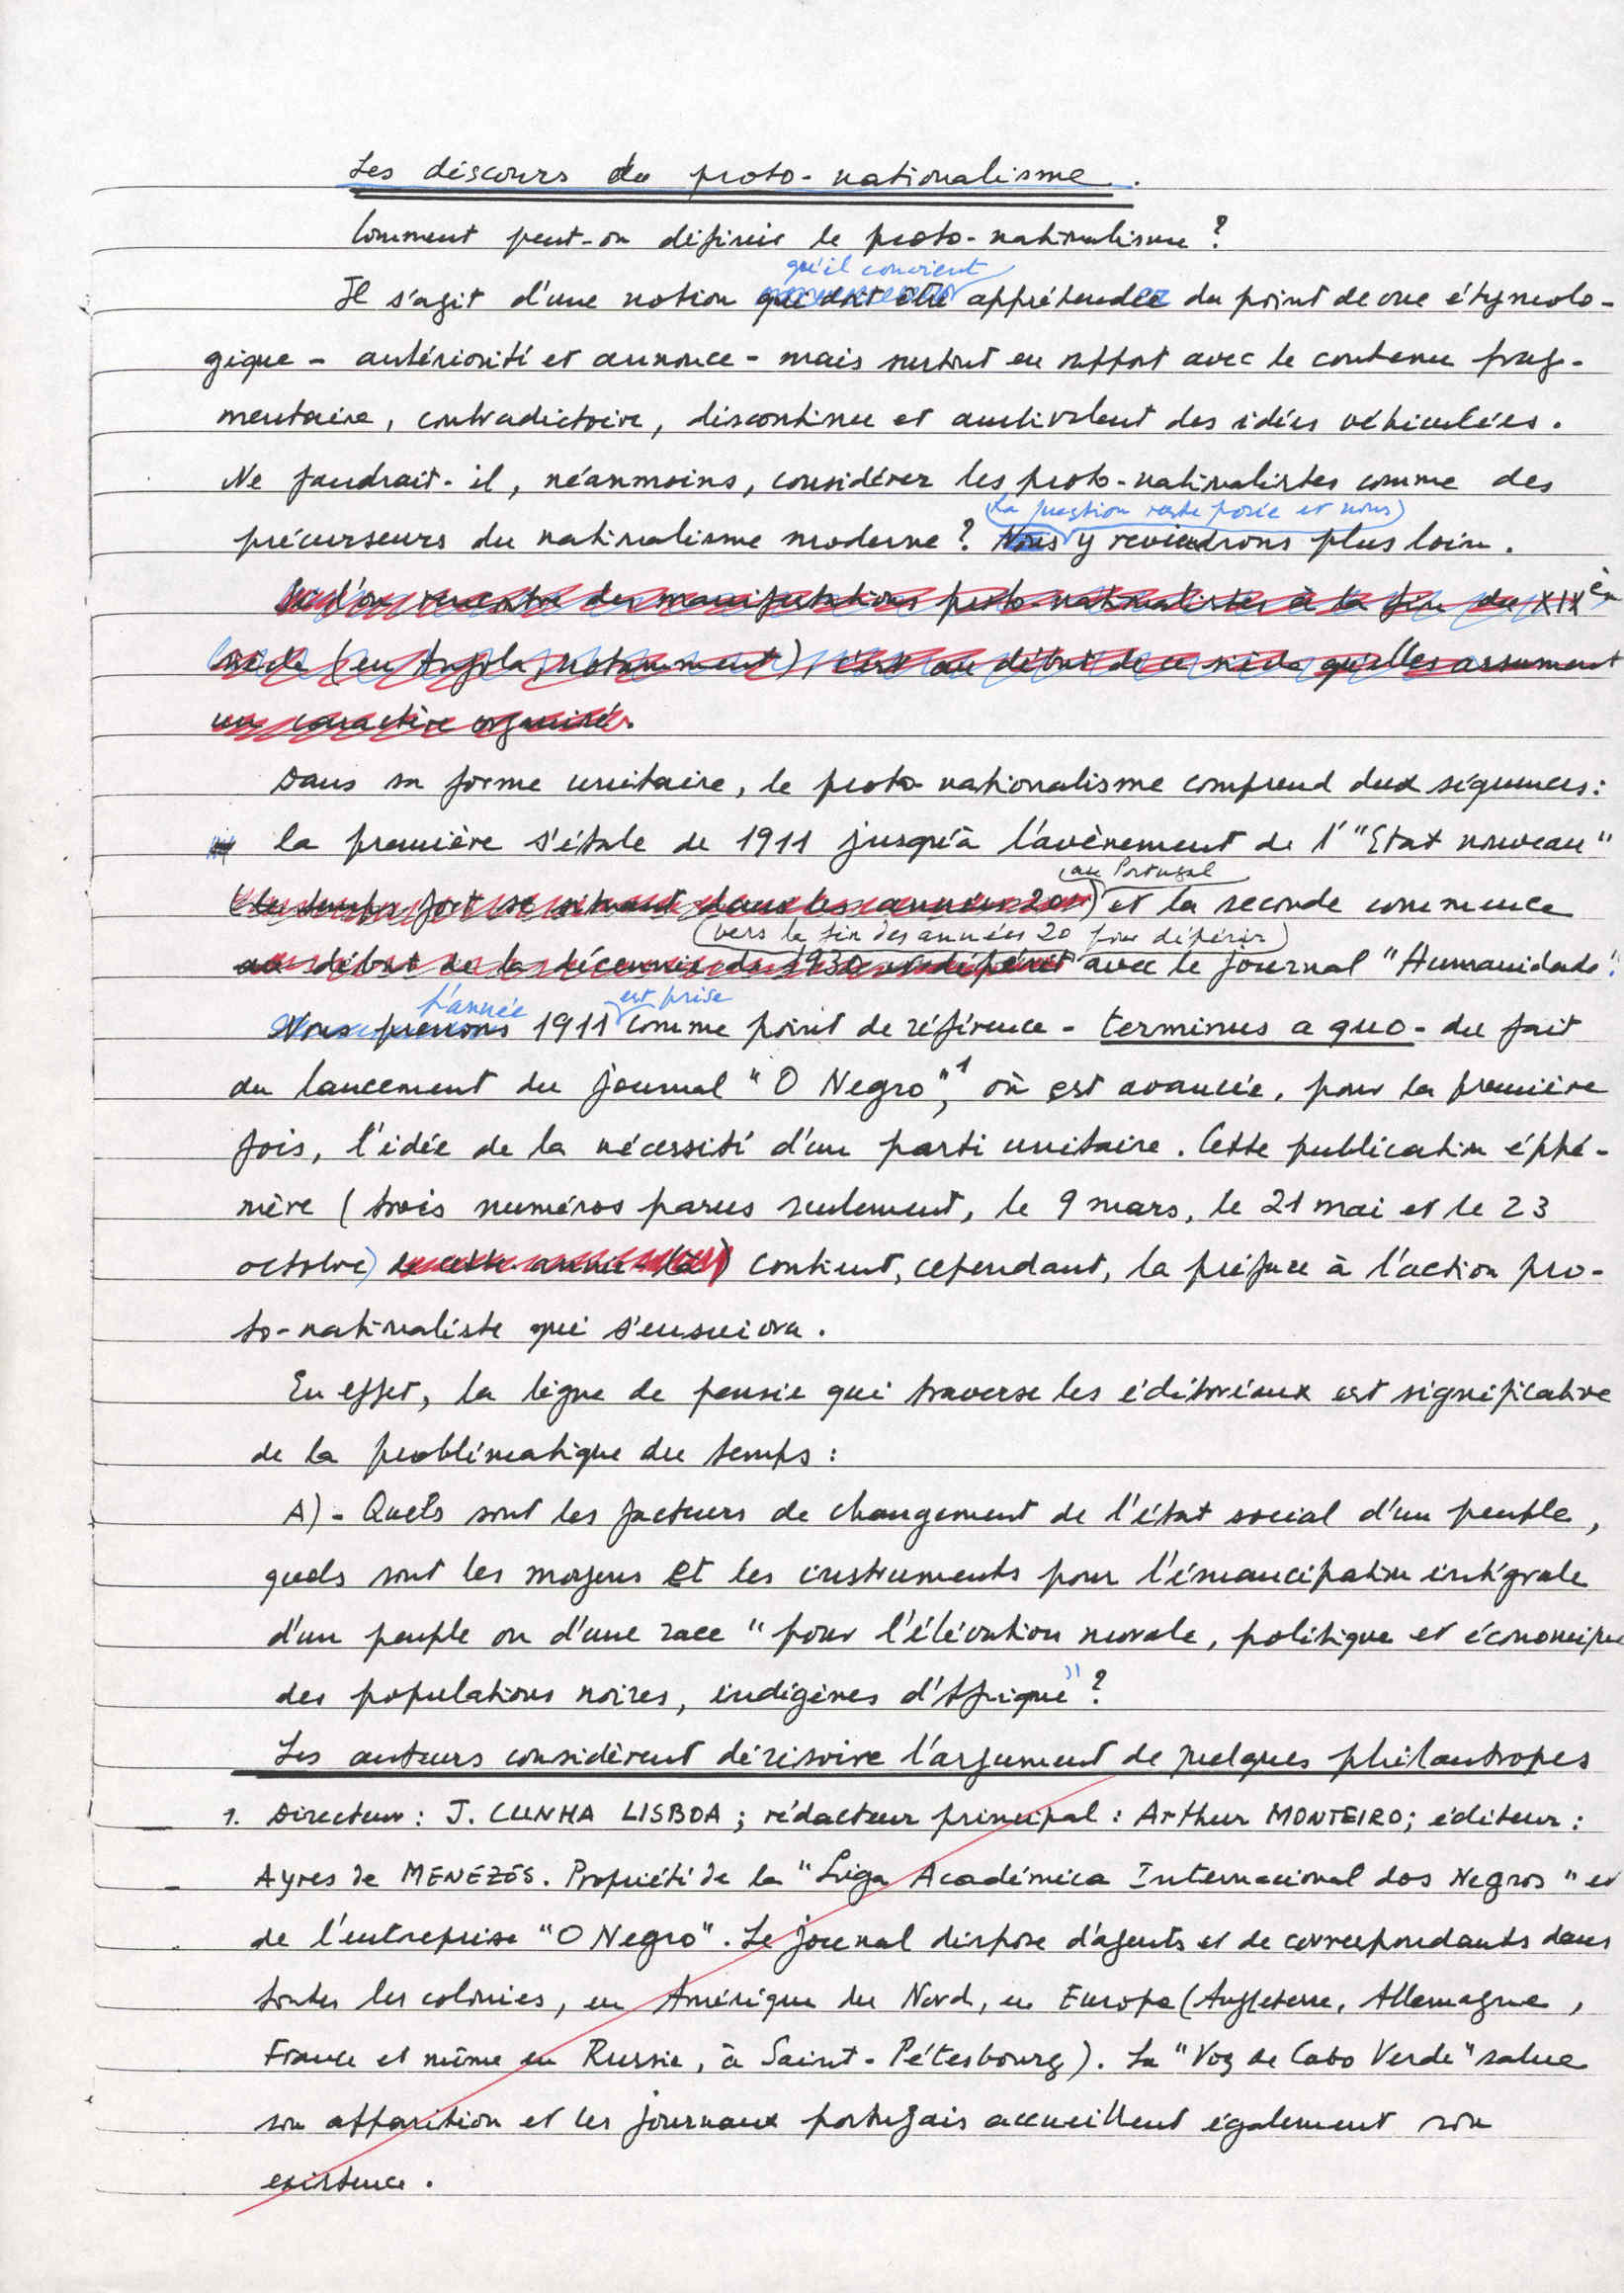 Les discours du proto-nationalisme.
Comment peut-on définir le proto-nationalisme ?
qu'il convient
Il s'agit d'une notion qui doit être appréhender du point de vue étymolo-
gique - antériorité et annonce - mais surtout en rapport avec le contenu frag-
mentaire, contradictoire, discontinu et ambivalent des idées véhiculées.
Ne faudrait-il, néanmoins, considérer les proto-nationalistes comme des
(La question reste posée et nous)
précurseurs du nationalisme moderne ? Nous y reviendrons plus loin.
Si l'on rencontre des manifestations proto-nationalistes à la fin du XIXè
siècle (en Angola, notamment), c'est au début de ce siècle qu'elles assument
un caractère organisé.
Dans sa forme unitaire, le proto-nationalisme comprend deux séquences :
la première s'étale de 1911 jusqu'à l'avènement de l'"Etat nouveau"
(au Portugal
(les temps fort se situant dans les années 20) et la seconde commence
(vers la fin des années 20 pour dépérir)
au début de la décennie de 1930 et dépérit avec le journal "Humanidade".
L'année est prise
Nous prenons 1911 comme point de référence - terminus a quo - du fait
du lancement du journal "O Negro",1 où est avancée, pour la première
fois, l'idée de la nécessité d'un parti unitaire. Cette publication éphé-
mère (trois numéros parus seulement, le 9 mars, le 21 mai et le 23
octobre) de cette année-là) contient, cependant, la préface à l'action pro-
to-nationaliste qui s'ensuivra.
En effet, la ligne de pensée qui traverse les éditoriaux est significative
de la problématique du temps :
A) - Quels sont les facteurs de changement de l'état social d'un peuple,
quels sont les moyens et les instruments pour l'émancipation intégrale
d'un peuple ou d'une race "pour l'élévation morale, politique et économique
des populations noires, indigènes d'Afrique" ?
Les auteurs considèrent dérisoire l'argument de quelques philantropes
1. Directeur : J. CUNHA LISBOA ; rédacteur principal : Arthur MONTEIRO ; éditeur :
Ayres de MENEZES. Propriété de la "Liga Académica Internacional dos Negros" et
de l'entreprise "O Negro". Le journal dispose d'agents et de correspondants dans
toutes les colonies, en Amérique du Nord, en Europe (Angleterre, Allemagne,
France et même en Russie, à Saint-Pétesbourg). La "Voz de Cabo Verde" salue
son apparition et les journaux portugais accueillent également son
existence.